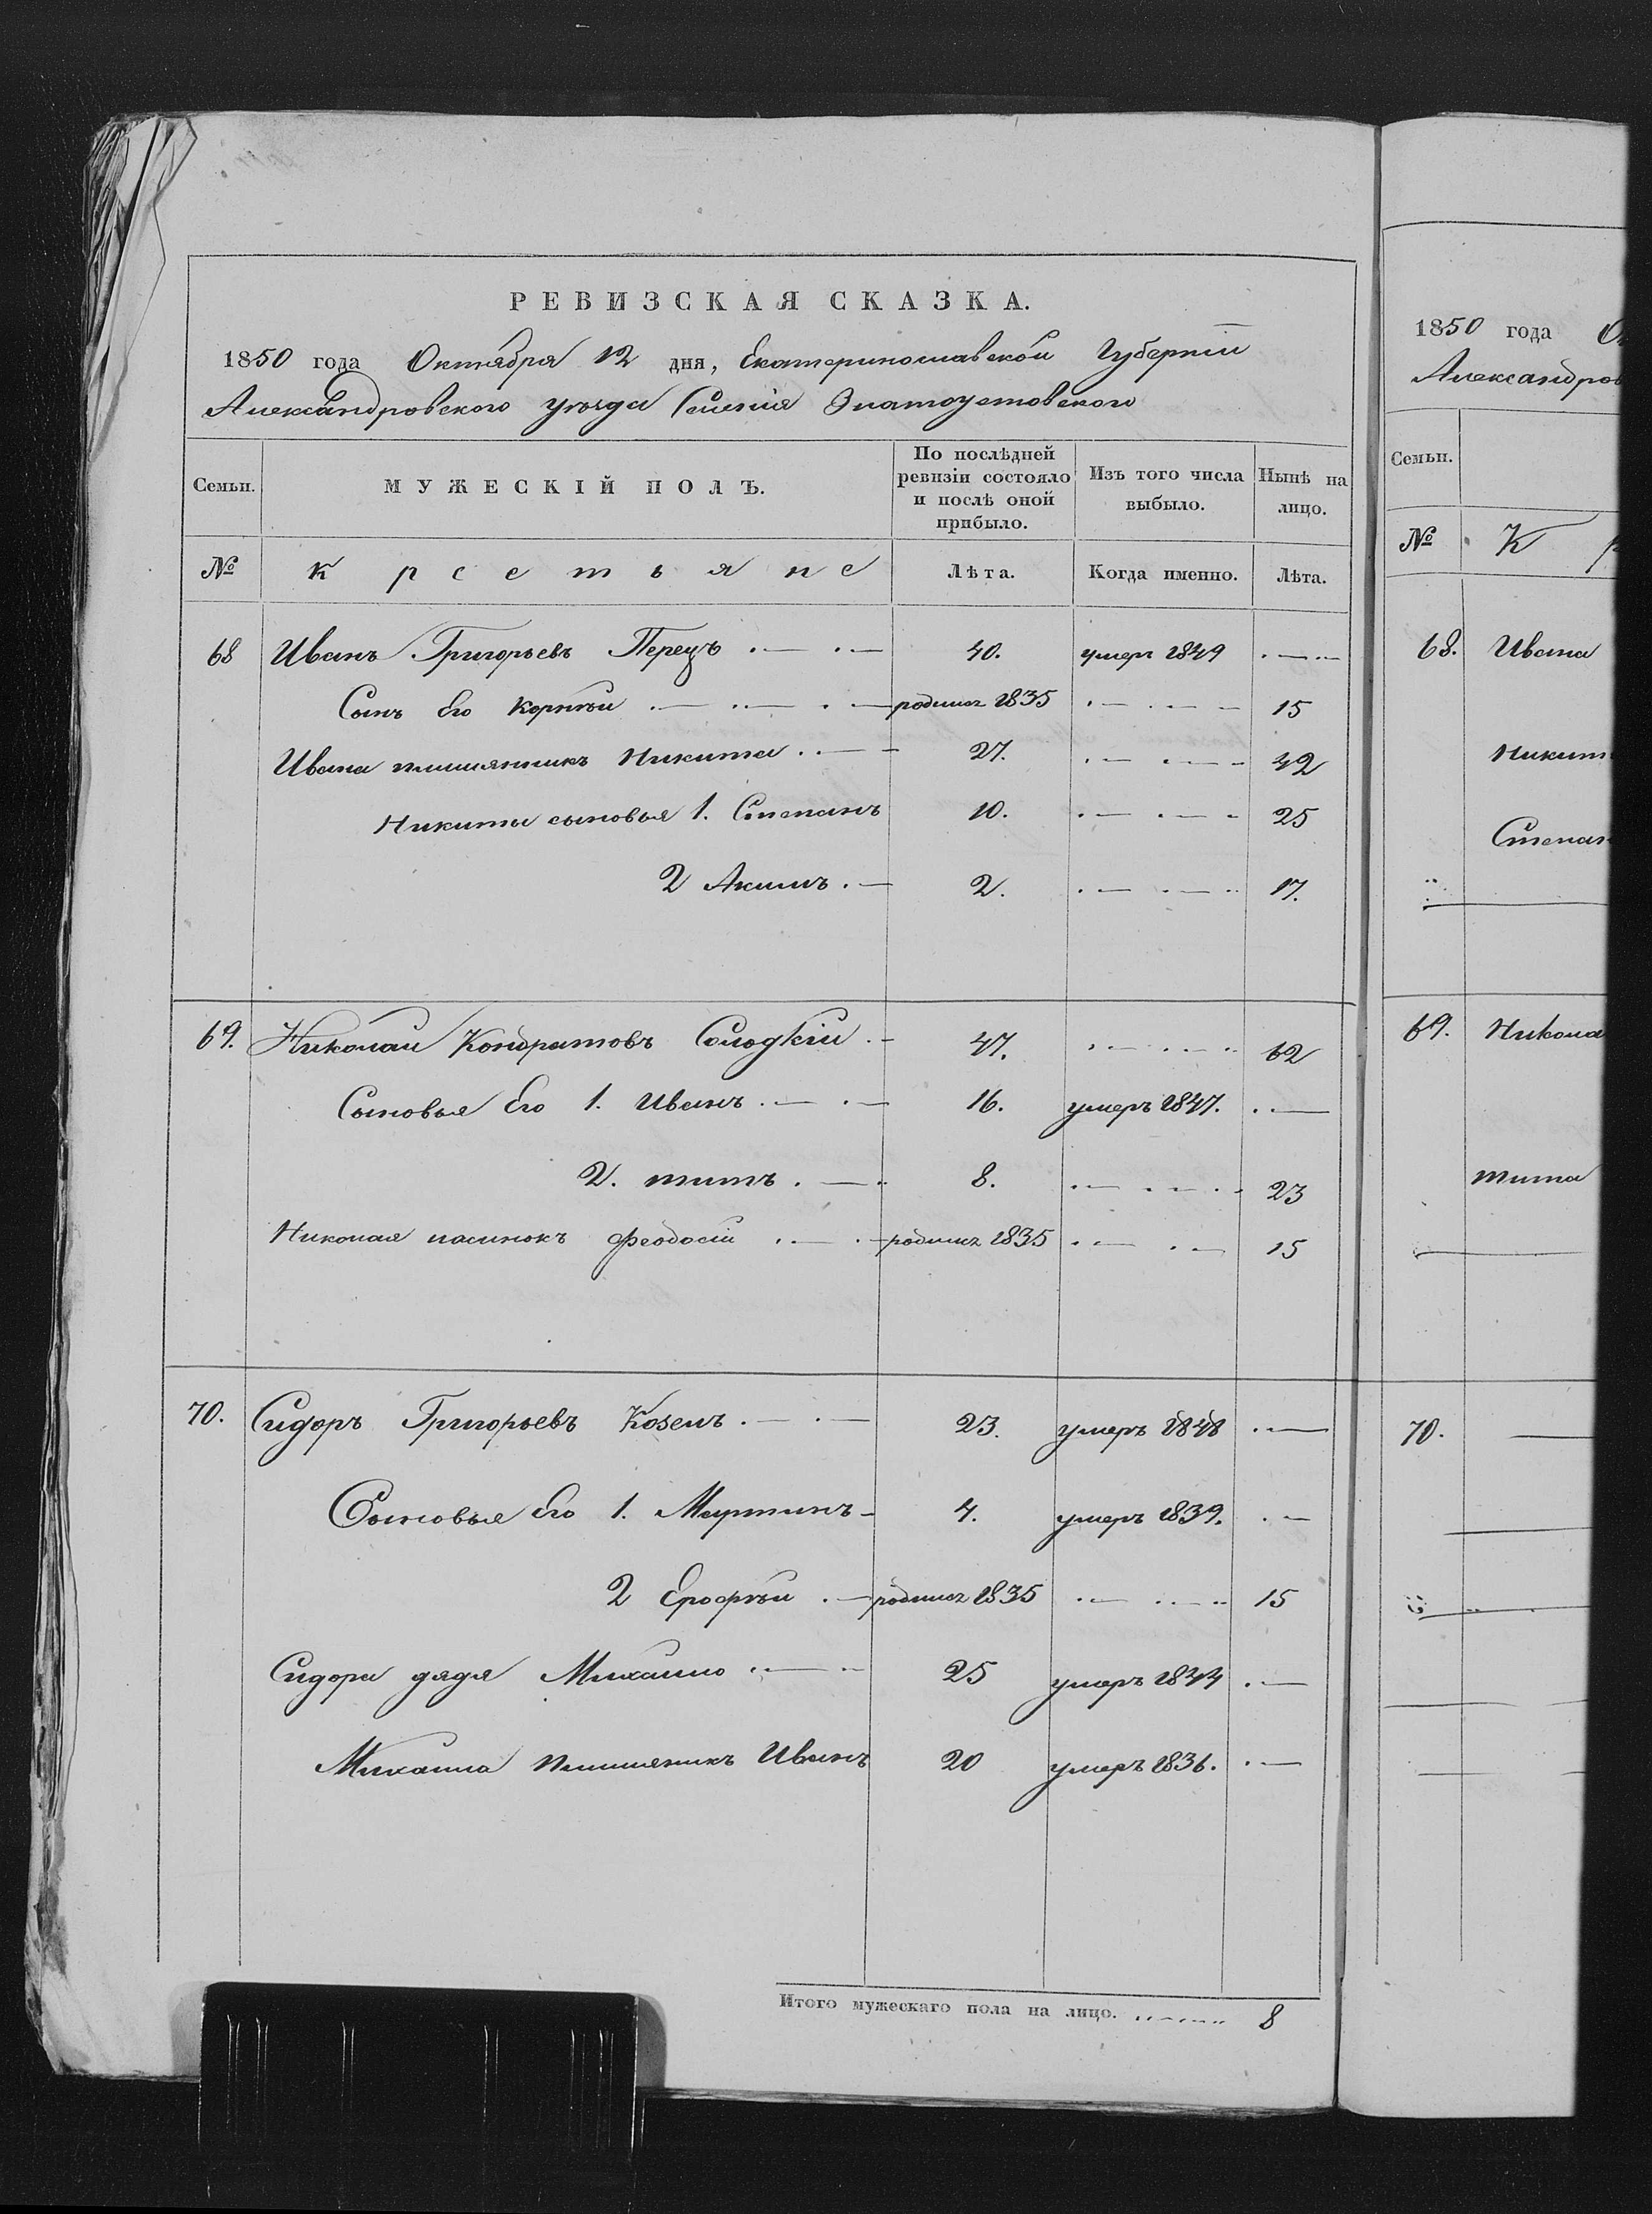 РЕВИЗСКАЯ СКАЗКА.
1850 года Октября 12 дня, Екатеринославской Губерніи
Александровского уѣзда Селенія Златоустовского
Семьи. МУЖЕСКІЙ ПОЛЪ. По послѣдней ревизіи состояло и послѣ оной прибыло. Изъ того числа выбыло. Нынѣ на лицо.
№ Крестьяне Лѣта. Когда именно. Лѣта.
68 Иванъ Григорьевъ Перецъ 40. умеръ 1849
Сынъ Его Корнѣй родился 1835 15
Ивана племянникъ Никита 27. 42
Никиты сыновья 1. Степанъ 10. 25
2 Акимъ 2. 17.
69. Николай Кондратовъ Солодкій 47. 62
Сыновья Его 1. Иванъ 16. умеръ 1847.
2. титъ 8. 23
Николая пасинокъ феодосій родился 1835 15
70. Сидоръ Григорьевъ Козелъ 23. умеръ 1848
Сыновья Его 1. Мартинъ 4. умеръ 1839.
2 Ерофѣй родился 1835 15
Сидора дядя Михаило 25 умеръ 1844
Михаила племяникъ Иванъ 20 умеръ 1836.
Итого мужескаго пола на лицо. 8
1850 года
Александров
Семьи.
№ К
68. Ивана
Никит
Степан
69. Никола
тита
70.